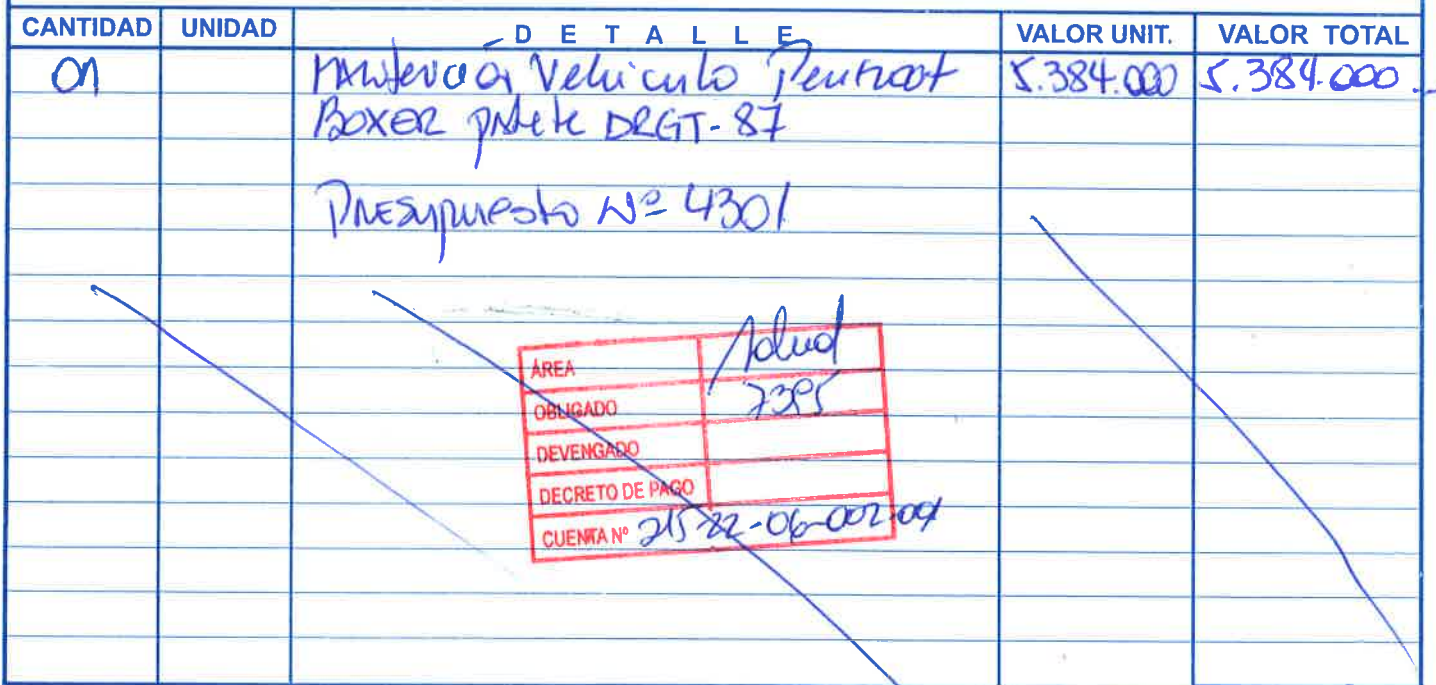 CANTIDAD UNIDAD DETALLE VALOR UNIT. VALOR TOTAL
01 Mantención Vehiculo Peugeot 5.384.000 5.384.000.-
BOXER patente DRGT-87
Presupuesto Nº 4301
ÁREA Salud
OBLIGADO 7395
DEVENGADO
DECRETO DE PAGO
CUENTA Nº 215-22-06-002-001